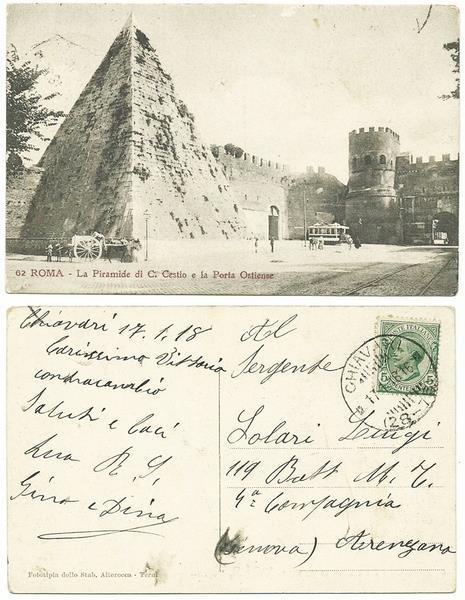 62 ROMA - La Piramide di C. Cestio e la Porta Ostiense
Chiavari 17.1.18
Carissimo Vittorio
contracambio
Saluti e Baci
Gino e Dina
Al
Sergente
Solari Luigi
119 Batt. M. T.
4ª Compagnia
(Genova) Arenzano
CHIAVARI
17
(28
5 5
Fototipia dello Stab. Alterocca - Terni